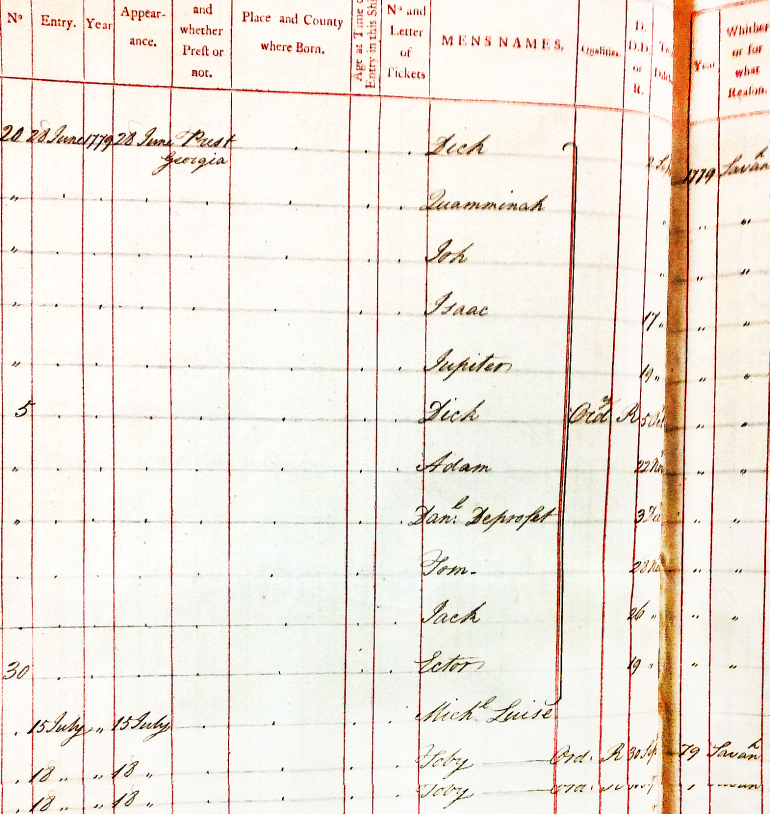 and Whether
Nº Entry. Year Appear- whether Place and County Age at Time of Nº and Letter MENS NAMES. Qualities. D. D.D. Year Whither or for
ance. Prest or not. where Born. Entry in this Ship of Tickets or R. what Reason.
20 28 June 1779 28 June Prest Dich 2 Sep 1779 Savanh
Georgia
" Quamminah " " "
" Joh " " "
" Isaac 17 " " "
" Jupiter 19 " " "
5 Dich Ordy R 5 Oct " "
" Adam 22 " "
" Danl. Deprofet 3 " "
Tom. 28 " "
Jack 26 " " "
30 Ector 19 " " "
15 July " 15 July Michl Luise
18 " " 18 " Toby Ord. R 30 Sep 79 Savanh
18 " " 18 " Toby